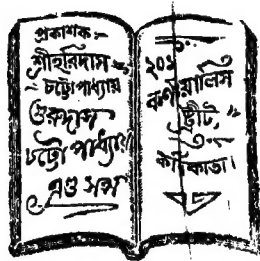 প্রকাশক :-
শ্রীহরিদাস
চট্টোপাধ্যায়
গুরুদাস
চট্টোপাধ্যায়
এণ্ড সন্স
২০১
কর্ণওয়ালিস
ষ্ট্রীট,
কলিকাতা।